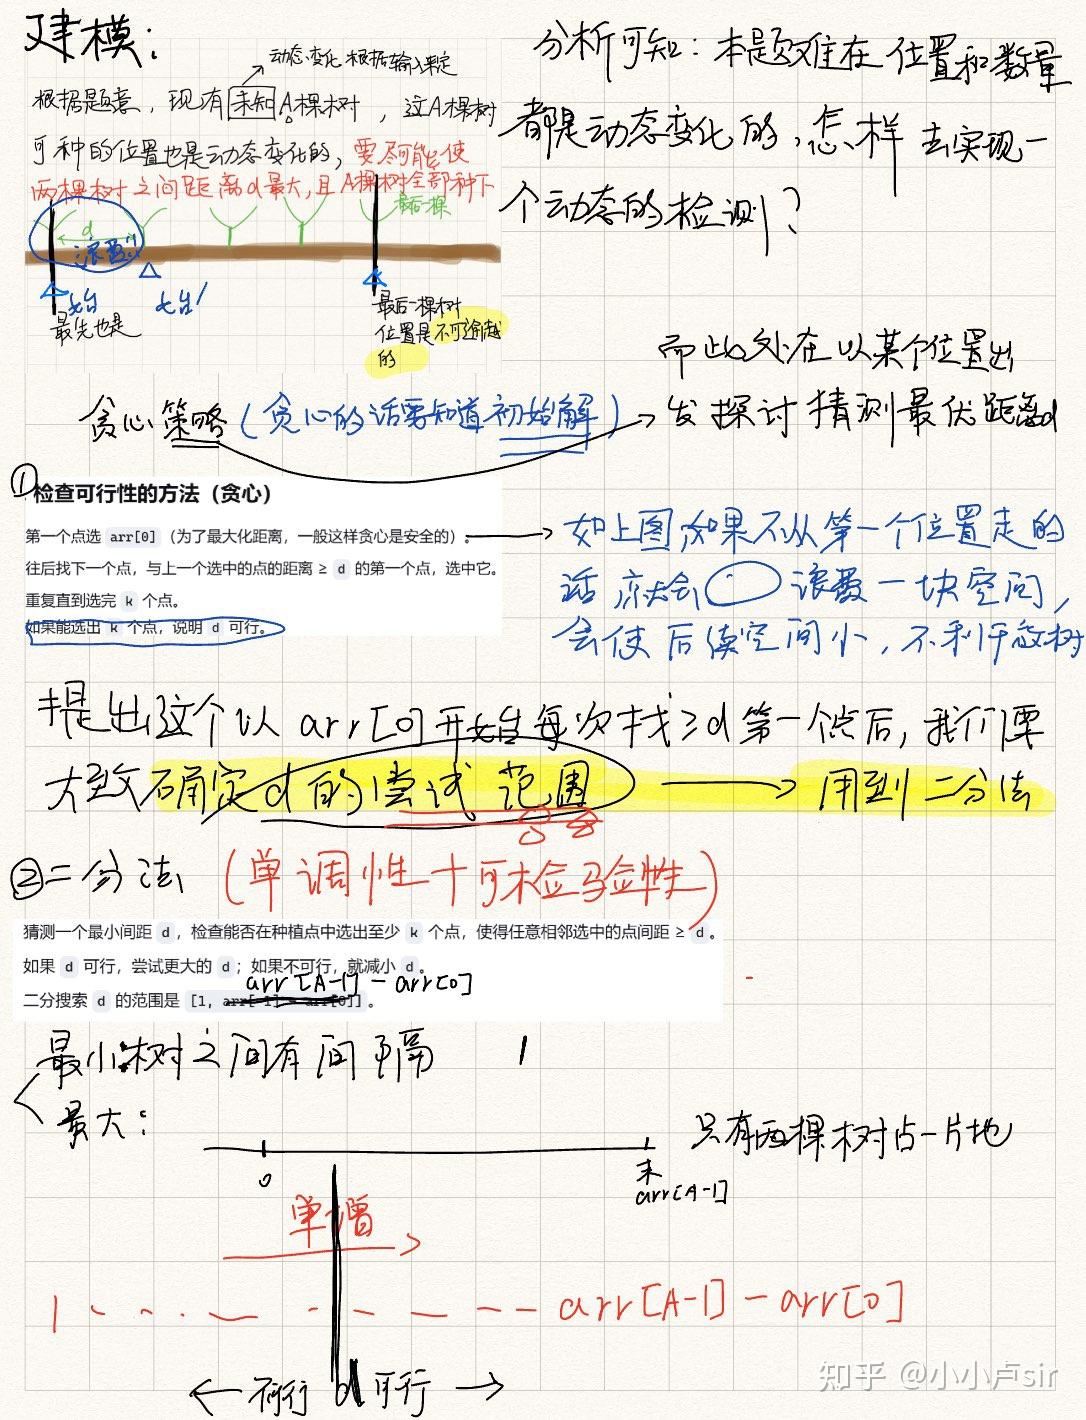 建模：
动态变化 根据输入来定
根据题意，现有未知A棵树，这A棵树
可种的位置也是动态变化的，要尽可能使
两棵树之间距离d最大，且A棵树全部种下
最后一棵
d
浪费!!
起始
起始'
最先也是
最后一棵树
位置是不可逾越
的
分析可知：本题难在位置和数量
都是动态变化的，怎样去实现一
个动态的检测？
而此处在以某个位置出
发探讨猜测最优距离d
贪心策略（贪心的话要知道初始解）
①
检查可行性的方法（贪心）
第一个点选 arr[0]（为了最大化距离，一般这样贪心是安全的）。
往后找下一个点，与上一个选中的点的距离 ≥ d 的第一个点，选中它。
重复直到选完 k 个点。
如果能选出 k 个点，说明 d 可行。
如上图，如果不从第一个位置走的
话 就会 浪费一块空间，
会使后续空间小，不利于放树
提出这个以arr[0]开始每次找≥d第一个点后，我们要
大致确定d的尝试范围 → 用到二分法
②二分法（单调性+可检验性）
猜测一个最小间距 d，检查能否在种植点中选出至少 k 个点，使得任意相邻选中的点间距 ≥ d。
如果 d 可行，尝试更大的 d；如果不可行，就减小 d。
arr[A-1] - arr[0]
二分搜索 d 的范围是 [1, arr[-1] - arr[0]]。
最小：树之间有间隔 1
最大：
只有两棵树占一片地
0
末
arr[A-1]
单增
1 arr[A-1] - arr[0]
← d 可行 →
知乎 @小小卢sir